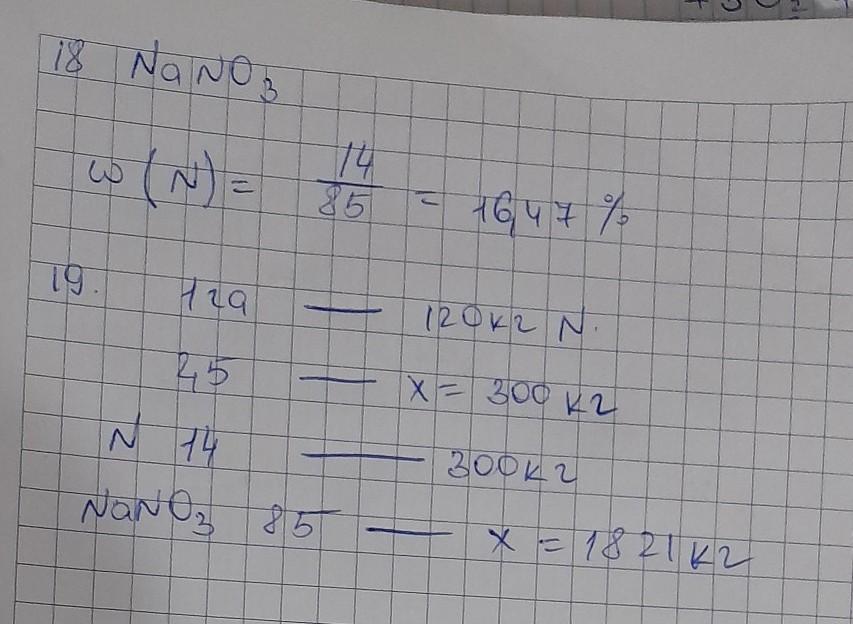 18 NaNO3
ω (N) = 14/85 = 16,47 %
19. 1га — 120кг N.
2,5 — x = 300 кг
N 14 — 300кг
NaNO3 85 — x = 1821 кг